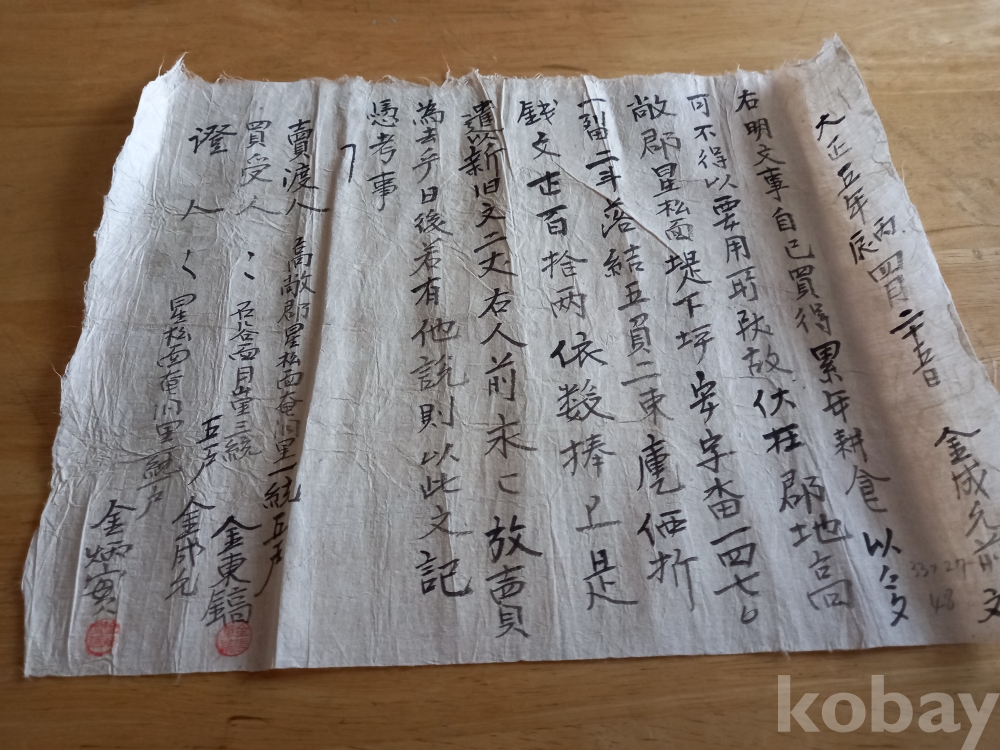 大正五年丙辰四月二十五日 金成允前 文
右明文事自己買得累年耕食以今
可不得以要用所致故伏在郡地高
敞郡星松面堤下坪字畓一四七
一畓二斗落結五負二束庫価折
銭文 百拾両依数捧上是
遣以新旧文二丈右人前永〻放賣
為去乎日後若有他説則以此文記
憑考事
賣渡人 高敞郡星松面 里一統五戸 金東鎬
買受人 〻 石谷面月 三統五戸 金成允
證人 〻 星松面 里 戸 金炳寅
33 27
48
kobay